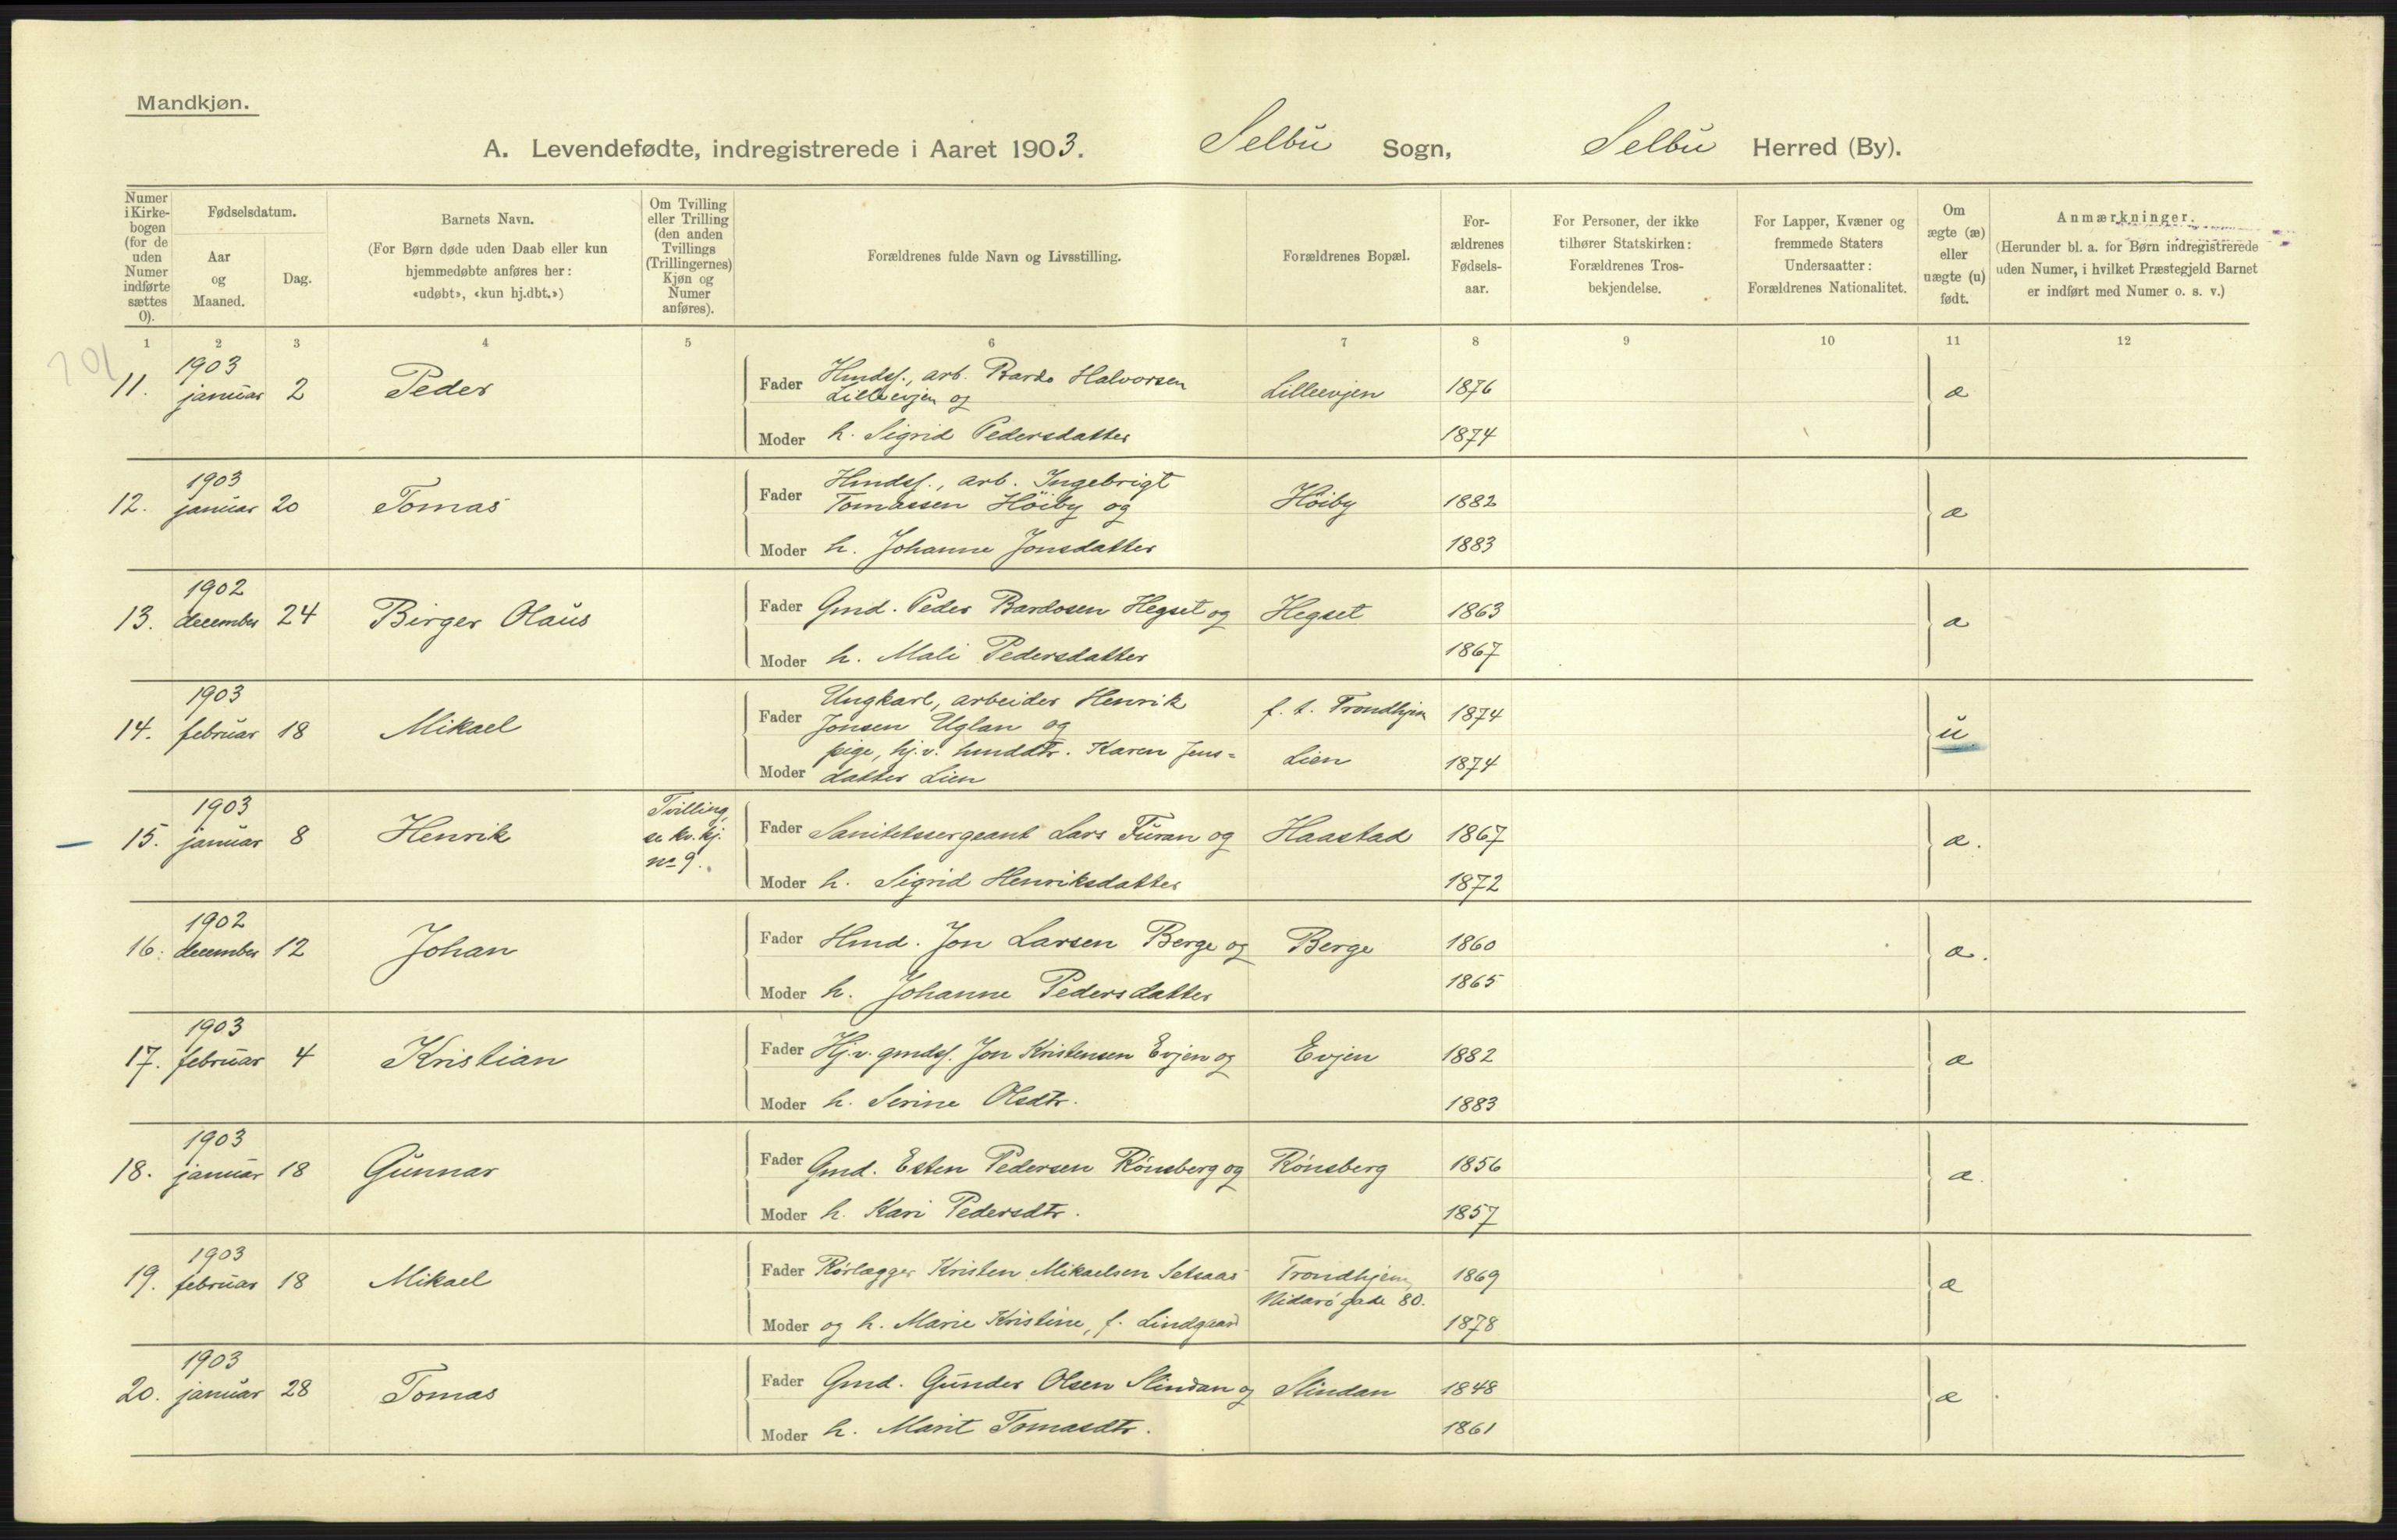 Mandkjøn.
A. Levendefødte, indregistrerede i Aaret 1903. Selbu Sogn, Selbu Herred (By).
Numer i Kirkebogen (for de uden Numer indførte sættes 0).
Fødselsdatum.
Aar og Maaned.
Dag.
Barnets Navn.
(For Børn døde uden Daab eller kun
hjemmedøbte anføres her:
«udøbt», «kun hj.dbt.»)
Om Tvilling
eller Trilling
(den anden
Tvillings
(Trillingernes)
Kjøn og
Numer
anføres).
Forældrenes fulde Navn og Livsstilling.
Forældrenes Bopæl.
For-
ældrenes
Fødsels-
aar.
For Personer, der ikke
tilhører Statskirken:
Forældrenes Tros-
bekjendelse.
For Lapper, Kvæner og
fremmede Staters
Undersaatter:
Forældrenes Nationalitet.
Om
ægte (æ)
eller
uægte (u)
født.
Anmærkninger.
(Herunder bl. a. for Børn indregistrerede
uden Numer, i hvilket Præstegjeld Barnet
er indført med Numer o. s. v.)
1 2 3 4 5 6 7 8 9 10 11 12
1903
11. januar 2 Peder
Fader Hmdsf., arb. Bardo Halvorsen
Lilleevjen og
Lilleevjen 1876 æ
Moder h. Sigrid Pedersdatter 1874
1903
12. januar 20 Tomas
Fader Hmdsf., arb. Ingebrigt
Tomassen Höiby og
Höiby 1882 æ
Moder h. Johanne Jonsdatter 1883
1902
13. december 24 Birger Olaus
Fader Gmd. Peder Bardosen Hegset og Hegset 1863 æ
Moder h. Mali Pedersdatter 1867
1903
14. februar 18 Mikael
Fader Ungkarl, arbeider Henrik
Jonsen Uglan og
f. t. Trondhjem 1874 u
Moder pige, hj.v. hmddtr. Karen Jens-
datter Lien
Lien 1874
1903
15. januar 8 Henrik
Tvilling,
se kv. kj.
no 9.
Fader Sanitetssergeant Lars Furan og Haastad 1867 æ.
Moder h. Sigrid Henriksdatter 1872
1902
16. december 12 Johan
Fader Hmd. Jon Larsen Berge og Berge 1860 æ.
Moder h. Johanne Pedersdatter 1865
1903
17. februar 4 Kristian
Fader Hj.v. gmdsf. Jon Kristensen Evjen og Evjen 1882 æ
Moder h. Serine Olsdtr. 1883
1903
18. januar 18 Gunnar
Fader Gmd. Esten Pedersen Rönsberg og Rönsberg 1856 æ.
Moder h. Kari Pedersdtr. 1857
1903
19. februar 18 Mikael
Fader Rörlægger Kristen Mikaelsen Setsaas Trondhjem, 1869 æ
Nidarögade 80.
Moder og h. Marie Kristine, f. Lindgaard 1878
1903
20. januar 28 Tomas
Fader Gmd. Gunder Olsen Slindan og Slindan 1848 æ
Moder h. Marit Tomasdtr. 1861